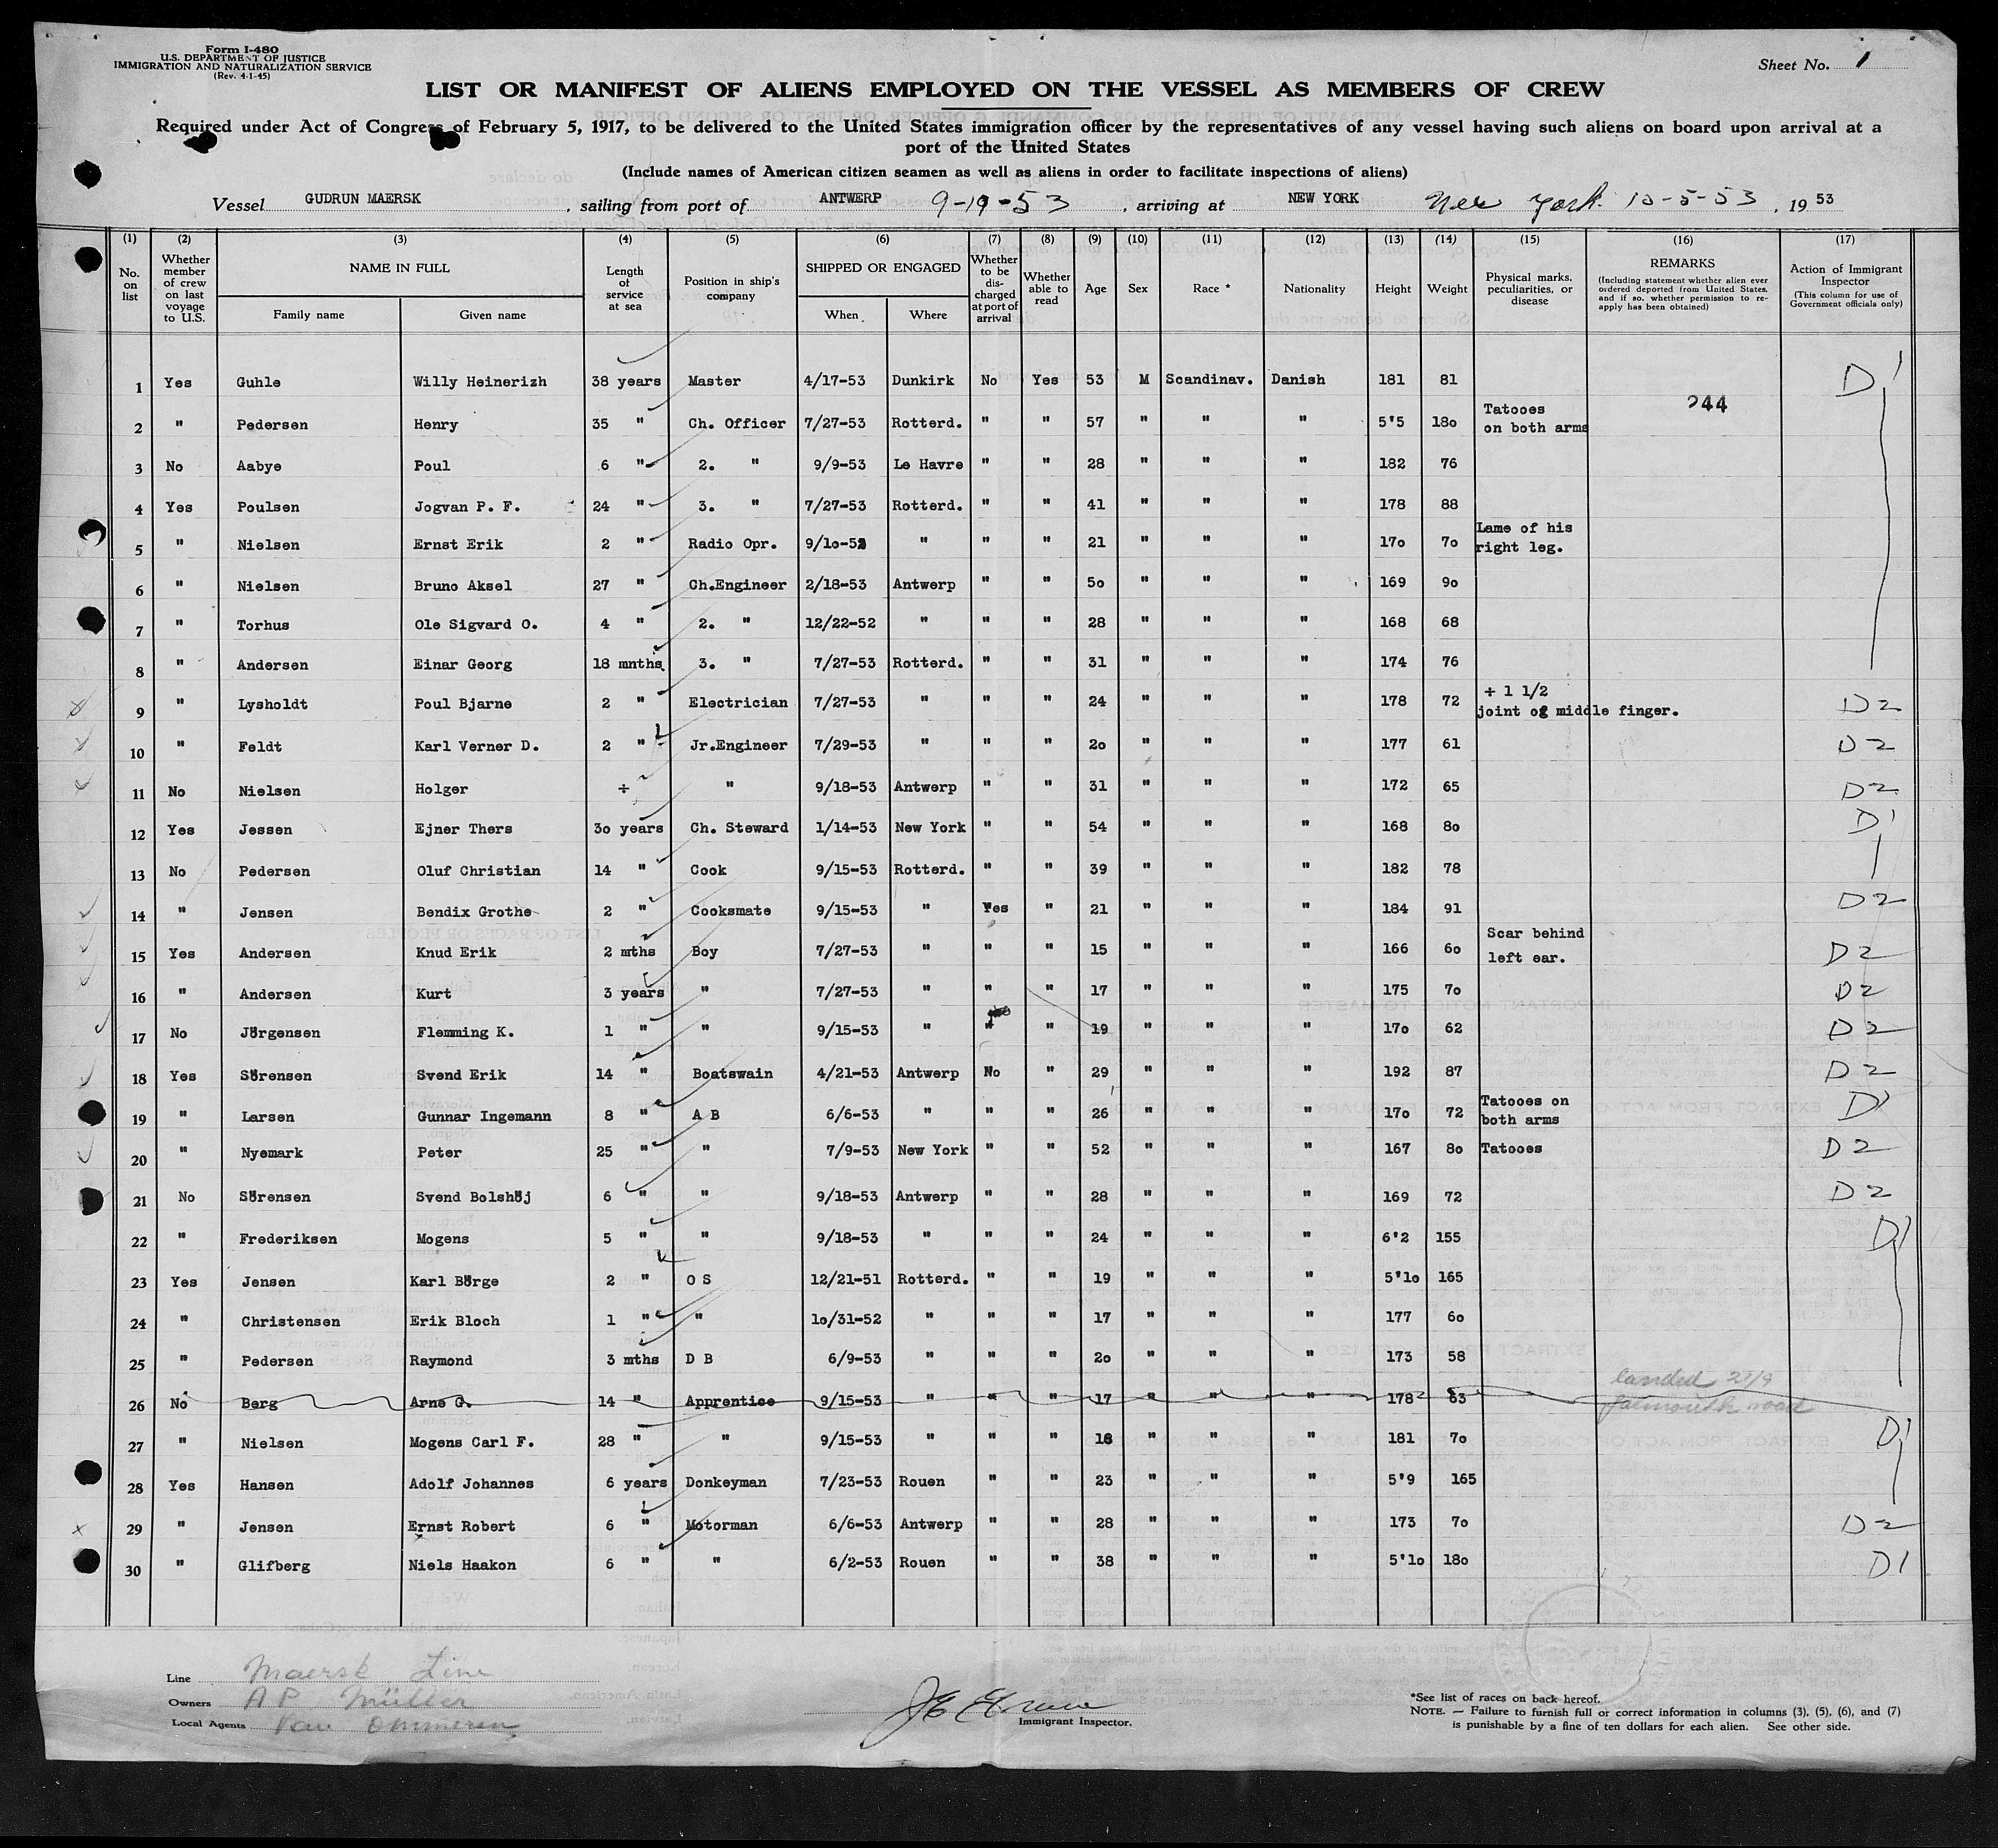 Form I-480
U.S. DEPARTMENT OF JUSTICE
IMMIGRATION AND NATURALIZATION SERVICE
(Rev. 4-1-45)
Sheet No. 1
LIST OR MANIFEST OF ALIENS EMPLOYED ON THE VESSEL AS MEMBERS OF CREW
Required under Act of Congress of February 5, 1917, to be delivered to the United States immigration officer by the representatives of any vessel having such aliens on board upon arrival at a
port of the United States
(Include names of American citizen seamen as well as aliens in order to facilitate inspections of aliens)
Vessel GUDRUN MAERSK , sailing from port of ANTWERP 9-19-53 , arriving at NEW YORK New York 10-5-53 , 19 53
(1) (2) (3) (4) (5) (6) (7) (8) (9) (10) (11) (12) (13) (14) (15) (16) (17)
No. on list | Whether member of crew on last voyage to U.S. | NAME IN FULL Family name Given name | Length of service at sea | Position in ship's company | SHIPPED OR ENGAGED When Where | Whether to be discharged at port of arrival | Whether able to read | Age | Sex | Race * | Nationality | Height | Weight | Physical marks, peculiarities, or disease | REMARKS (Including statement whether alien ever ordered deported from United States, and if so, whether permission to re-apply has been obtained) | Action of Immigrant Inspector (This column for use of Government officials only)
1 Yes Guhle Willy Heinerizh 38 years Master 4/17-53 Dunkirk No Yes 53 M Scandinav. Danish 181 81 D1
244
2 " Pedersen Henry 35 " Ch. Officer 7/27-53 Rotterd. " " 57 " " " 5'5 180 Tatooes on both arms
3 No Aabye Poul 6 " 2. " 9/9-53 Le Havre " " 28 " " " 182 76
4 Yes Poulsen Jogvan P. F. 24 " 3. " 7/27-53 Rotterd. " " 41 " " " 178 88
5 " Nielsen Ernst Erik 2 " Radio Opr. 9/10-52 " " " 21 " " " 170 70 Lame of his right leg.
6 " Nielsen Bruno Aksel 27 " Ch.Engineer 2/18-53 Antwerp " " 50 " " " 169 90
7 " Torhus Ole Sigvard O. 4 " 2. " 12/22-52 " " " 28 " " " 168 68
8 " Andersen Einar Georg 18 mnths. 3. " 7/27-53 Rotterd. " " 31 " " " 174 76
9 " Lysholdt Poul Bjarne 2 " Electrician 7/27-53 " " " 24 " " " 178 72 + 1 1/2 joint of middle finger. D2
10 " Feldt Karl Verner D. 2 " Jr.Engineer 7/29-53 " " " 20 " " " 177 61 D2
11 No Nielsen Holger ÷ " 9/18-53 Antwerp " " 31 " " " 172 65 D2
12 Yes Jessen Ejner Thers 30 years Ch. Steward 1/14-53 New York " " 54 " " " 168 80 D1
13 No Pedersen Oluf Christian 14 " Cook 9/15-53 Rotterd. " " 39 " " " 182 78
14 " Jensen Bendix Grothe 2 " Cooksmate 9/15-53 " Yes " 21 " " " 184 91 D2
15 Yes Andersen Knud Erik 2 mths Boy 7/27-53 " " " 15 " " " 166 60 Scar behind left ear. D2
16 " Andersen Kurt 3 years " 7/27-53 " " " 17 " " " 175 70 D2
17 No Jörgensen Flemming K. 1 " " 9/15-53 " " " 19 " " " 170 62 D2
18 Yes Sörensen Svend Erik 14 " Boatswain 4/21-53 Antwerp No " 29 " " " 192 87 D2
19 " Larsen Gunnar Ingemann 8 " A B 6/6-53 " " " 26 " " " 170 72 Tatooes on both arms D1
20 " Nyemark Peter 25 " " 7/9-53 New York " " 52 " " " 167 80 Tatooes D2
21 No Sörensen Svend Bolshöj 6 " " 9/18-53 Antwerp " " 28 " " " 169 72 D2
22 " Frederiksen Mogens 5 " " 9/18-53 " " " 24 " " " 6'2 155 D1
23 Yes Jensen Karl Börge 2 " O S 12/21-51 Rotterd. " " 19 " " " 5'10 165
24 " Christensen Erik Bloch 1 " " 10/31-52 " " " 17 " " " 177 60
25 " Pedersen Raymond 3 mths D B 6/9-53 " " " 20 " " " 173 58
26 No Berg Arne G. 14 " Apprentice 9/15-53 " " " 17 " " " 178 63 landed 27/9 falmouth road
27 " Nielsen Mogens Carl F. 28 " " 9/15-53 " " " 18 " " " 181 70 D1
28 Yes Hansen Adolf Johannes 6 years Donkeyman 7/23-53 Rouen " " 23 " " " 5'9 165
29 " Jensen Ernst Robert 6 " Motorman 6/6-53 Antwerp " " 28 " " " 173 70 D2
30 " Glifberg Niels Haakon 6 " " 6/2-53 Rouen " " 38 " " " 5'10 180 D1
Line Maersk Line
Owners A P Müller
Local Agents Van Ommeren
Immigrant Inspector.
*See list of races on back hereof.
NOTE. — Failure to furnish full or correct information in columns (3), (5), (6), and (7)
is punishable by a fine of ten dollars for each alien. See other side.